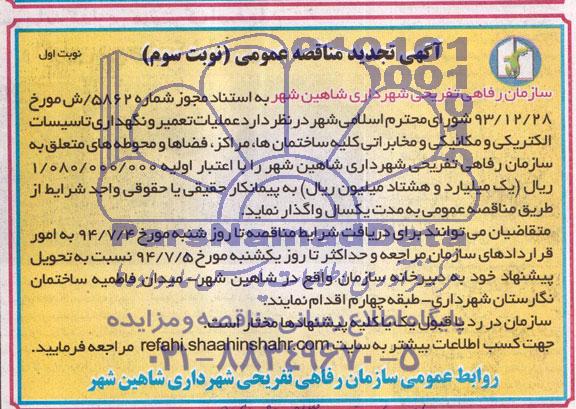 آگهی تجدید مناقصه عمومی (نوبت سوم)
نوبت اول
سازمان رفاهی تفریحی شهرداری شاهین شهر به استناد مجوز شماره ۵۸۶۲/ش مورخ
۹۳/۱۲/۲۸ شورای محترم اسلامی شهر در نظر دارد عملیات تعمیر و نگهداری تاسیسات
الکتریکی و مکانیکی و مخابراتی کلیه ساختمان ها، مراکز، فضاها و محوطه های متعلق به
سازمان رفاهی تفریحی شهرداری شاهین شهر را با اعتبار اولیه ۱/۰۸۰/۰۰۰/۰۰۰
ریال (یک میلیارد و هشتاد میلیون ریال) به پیمانکار حقیقی یا حقوقی واجد شرایط از
طریق مناقصه عمومی به مدت یکسال واگذار نماید.
متقاضیان می توانند برای دریافت شرایط مناقصه تا روز شنبه مورخ ۹۴/۷/۴ به امور
قراردادهای سازمان مراجعه و حداکثر تا روز یکشنبه مورخ ۹۴/۷/۵ نسبت به تحویل
پیشنهاد خود به دبیرخانه سازمان واقع در شاهین شهر- میدان فاطمیه ساختمان
نگارستان شهرداری-طبقه چهارم اقدام نمایند.
سازمان در رد یا قبول یک یا کلیه پیشنهادها مختار است.
جهت کسب اطلاعات بیشتر به سایت refahi.shaahinshahr.com مراجعه فرمایید.
روابط عمومی سازمان رفاهی تفریحی شهرداری شاهین شهر
پایگاه اطلاع رسانی مناقصه و مزایده
۰۲۱-۸۸۳۴۹۶۷۰-۵